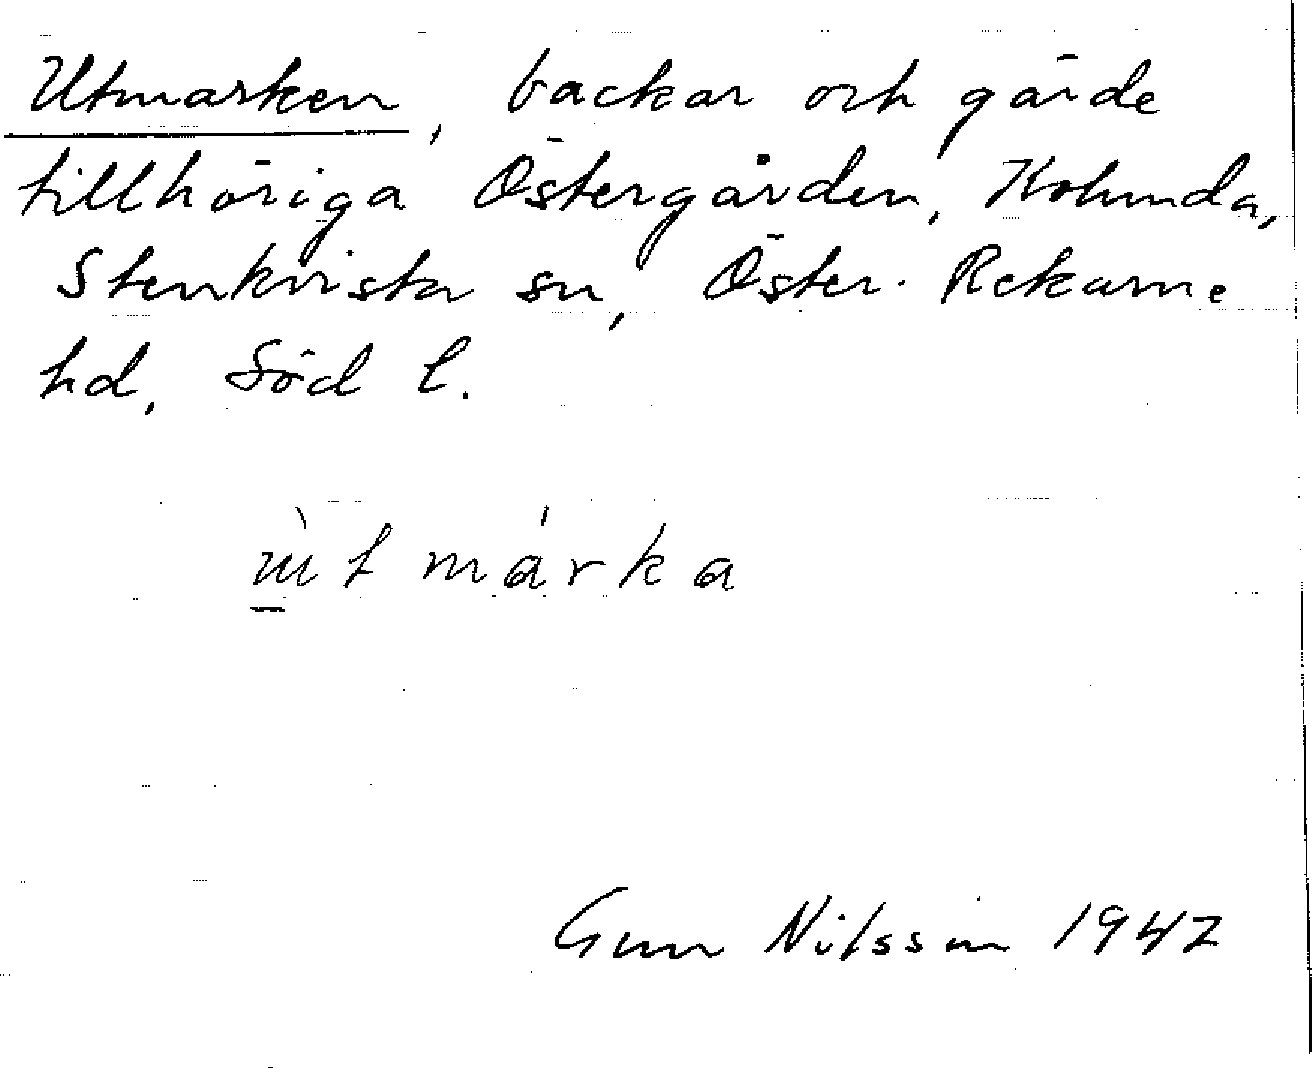 Utmarken, backar och gärde
tillhöriga Östergården, Kolunda,
Stenkvista sn, Öster-Rekarne
hd, Söd l.
ùtmárka
Gun Nilsson 1942